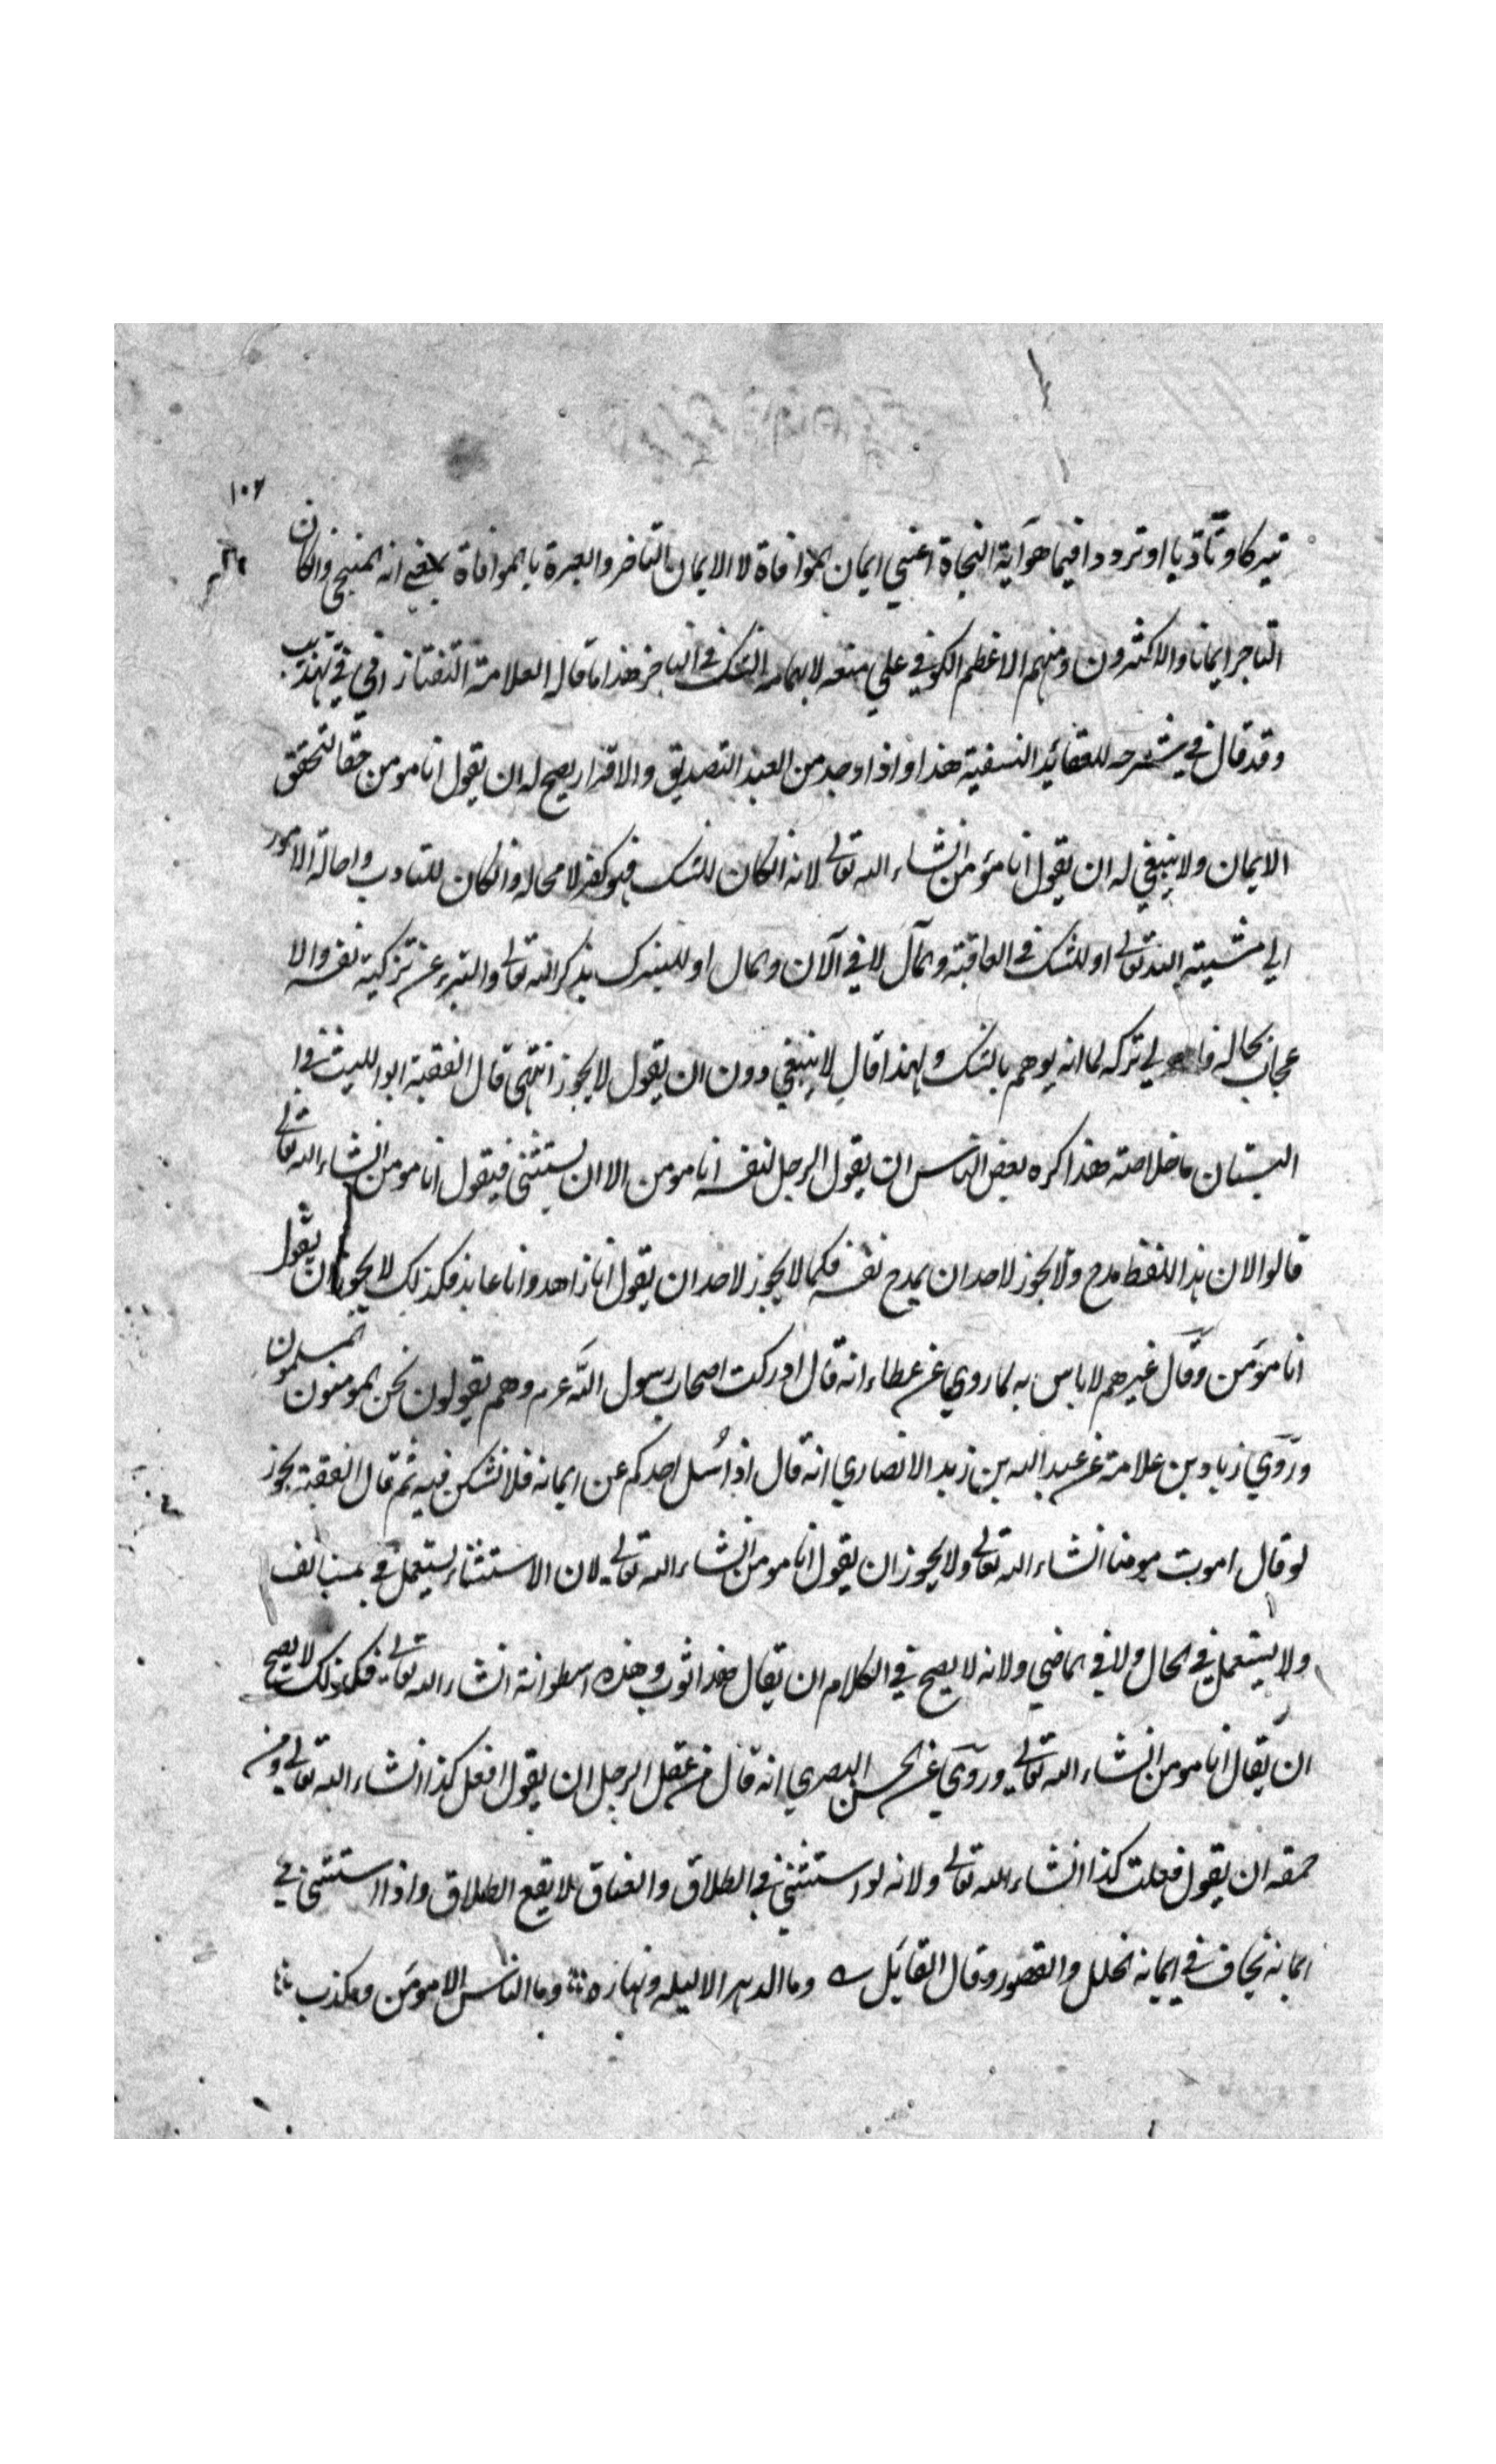 ١٠٢
تبركا وتأدبا او ترددا فيما هو آية النجاة اعني ايمان الموافاة لا الايمان الناجز والعبرة بالموافاة بمعني انه المنجي وانكان
الناجز ايمانا والاكثرون ومنهم الاعظم الكوفي علي منعه لايهامه الشك في الناجز هذا ما قاله العلامة التفتازاني في تهذيبه
وقد قال في شرحه للعقائد النسفية هذا واذا وجد من العبد التصديق والاقرار يصح له ان يقول انا مومن حقا لتحقق
الايمان ولا ينبغي له ان يقول انا مؤمن انشاء الله تعالي لانه انكان للشك فهو كفر لا محالة وانكان للتادب واحالة الامور
الي مشيته الله تعالي او للشك في العاقبة والمآل لا في الآن والحال او للتبرك بذكر الله تعالي والتبرء عن تزكية نفسه والا
عجاب بحاله فا لي تركه لما انه يوهم بالشك ولهذا قال لا ينبغي دون ان يقول لا يجوز انتهي قال الفقيه ابو الليث في ا
البستان ما خلاصته هذا كره بعض الناس ان يقول الرجل لنفسه انا مومن الا ان يستثني فيقول انا مومن انشاء الله تعالي
قالوا لان هذا اللفظ مدح ولا يجوز لاحد ان يمدح نفسه فكما لا يجوز لاحد ان يقول انا زاهد وانا عابد فكذلك لا يجوز ان يقول
انا مؤمن وقال غيرهم لا باس به لما روي عن عطاء انه قال ادركت اصحاب رسول الله عم وهم يقولون نحن المومنون المسلمون
وروي زياد بن علامة عن عبد الله بن زيد الانصاري انه قال اذا سُئل احدكم عن ايمانه فلا نشكن فيه ثم قال الفقيه يجوز
لو قال اموت مومنا انشاء الله تعالي ولا يجوز ان يقول انا مومن انشاء الله تعالي لان الاستثناء يستعمل في المستانف
ولا يستعمل في الحال ولا في الماضي ولانه لا يصح في الكلام ان يقال هذا ثوب وهذه اسطوانة انشاء الله تعالي فكذلك لا يصح
ان يقال انا مومن انشاء الله تعالي وروي عن الحسن البصري انه قال من عقل الرجل ان يقول افعل كذا انشاء الله تعالي ومن
حمقه ان يقول فعلت كذا انشاء الله تعالي ولانه لو استثني في الطلاق والعتاق لا يقع الطلاق واذا استثني في
ايمانه يخاف في ايمانه الخلل والقصور وقال القايل وما الدهر الا ليله ونهاره وما الناس الا مومن ومكذب